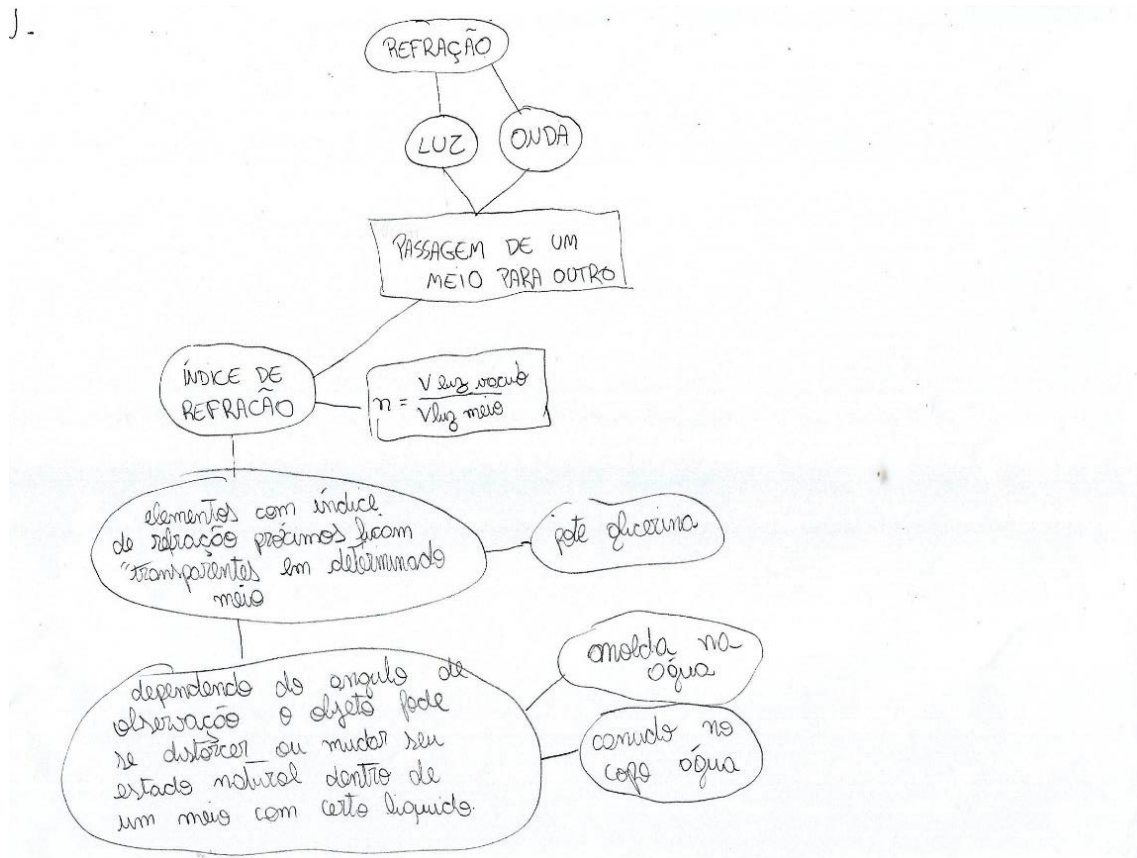 J.
REFRAÇÃO
LUZ
ONDA
PASSAGEM DE UM
MEIO PARA OUTRO
ÍNDICE DE
REFRAÇÃO
n = V luz vacuo / V luz meio
elementos com índice
de refração próximos ficam
"transparentes em determinado
meio
pote glicerina
dependendo do angulo de
observação o objeto pode
se distorcer ou mudar seu
estado natural dentro de
um meio com certo liquido.
moeda na
água
canudo no
copo água